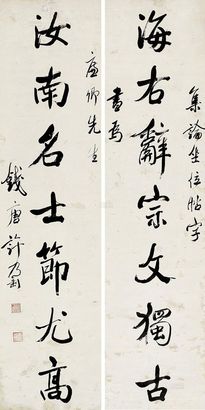 集論坐位帖字
海右辭宗文獨古
書為
卿先生
汝南名士節尤高
錢唐許乃釗